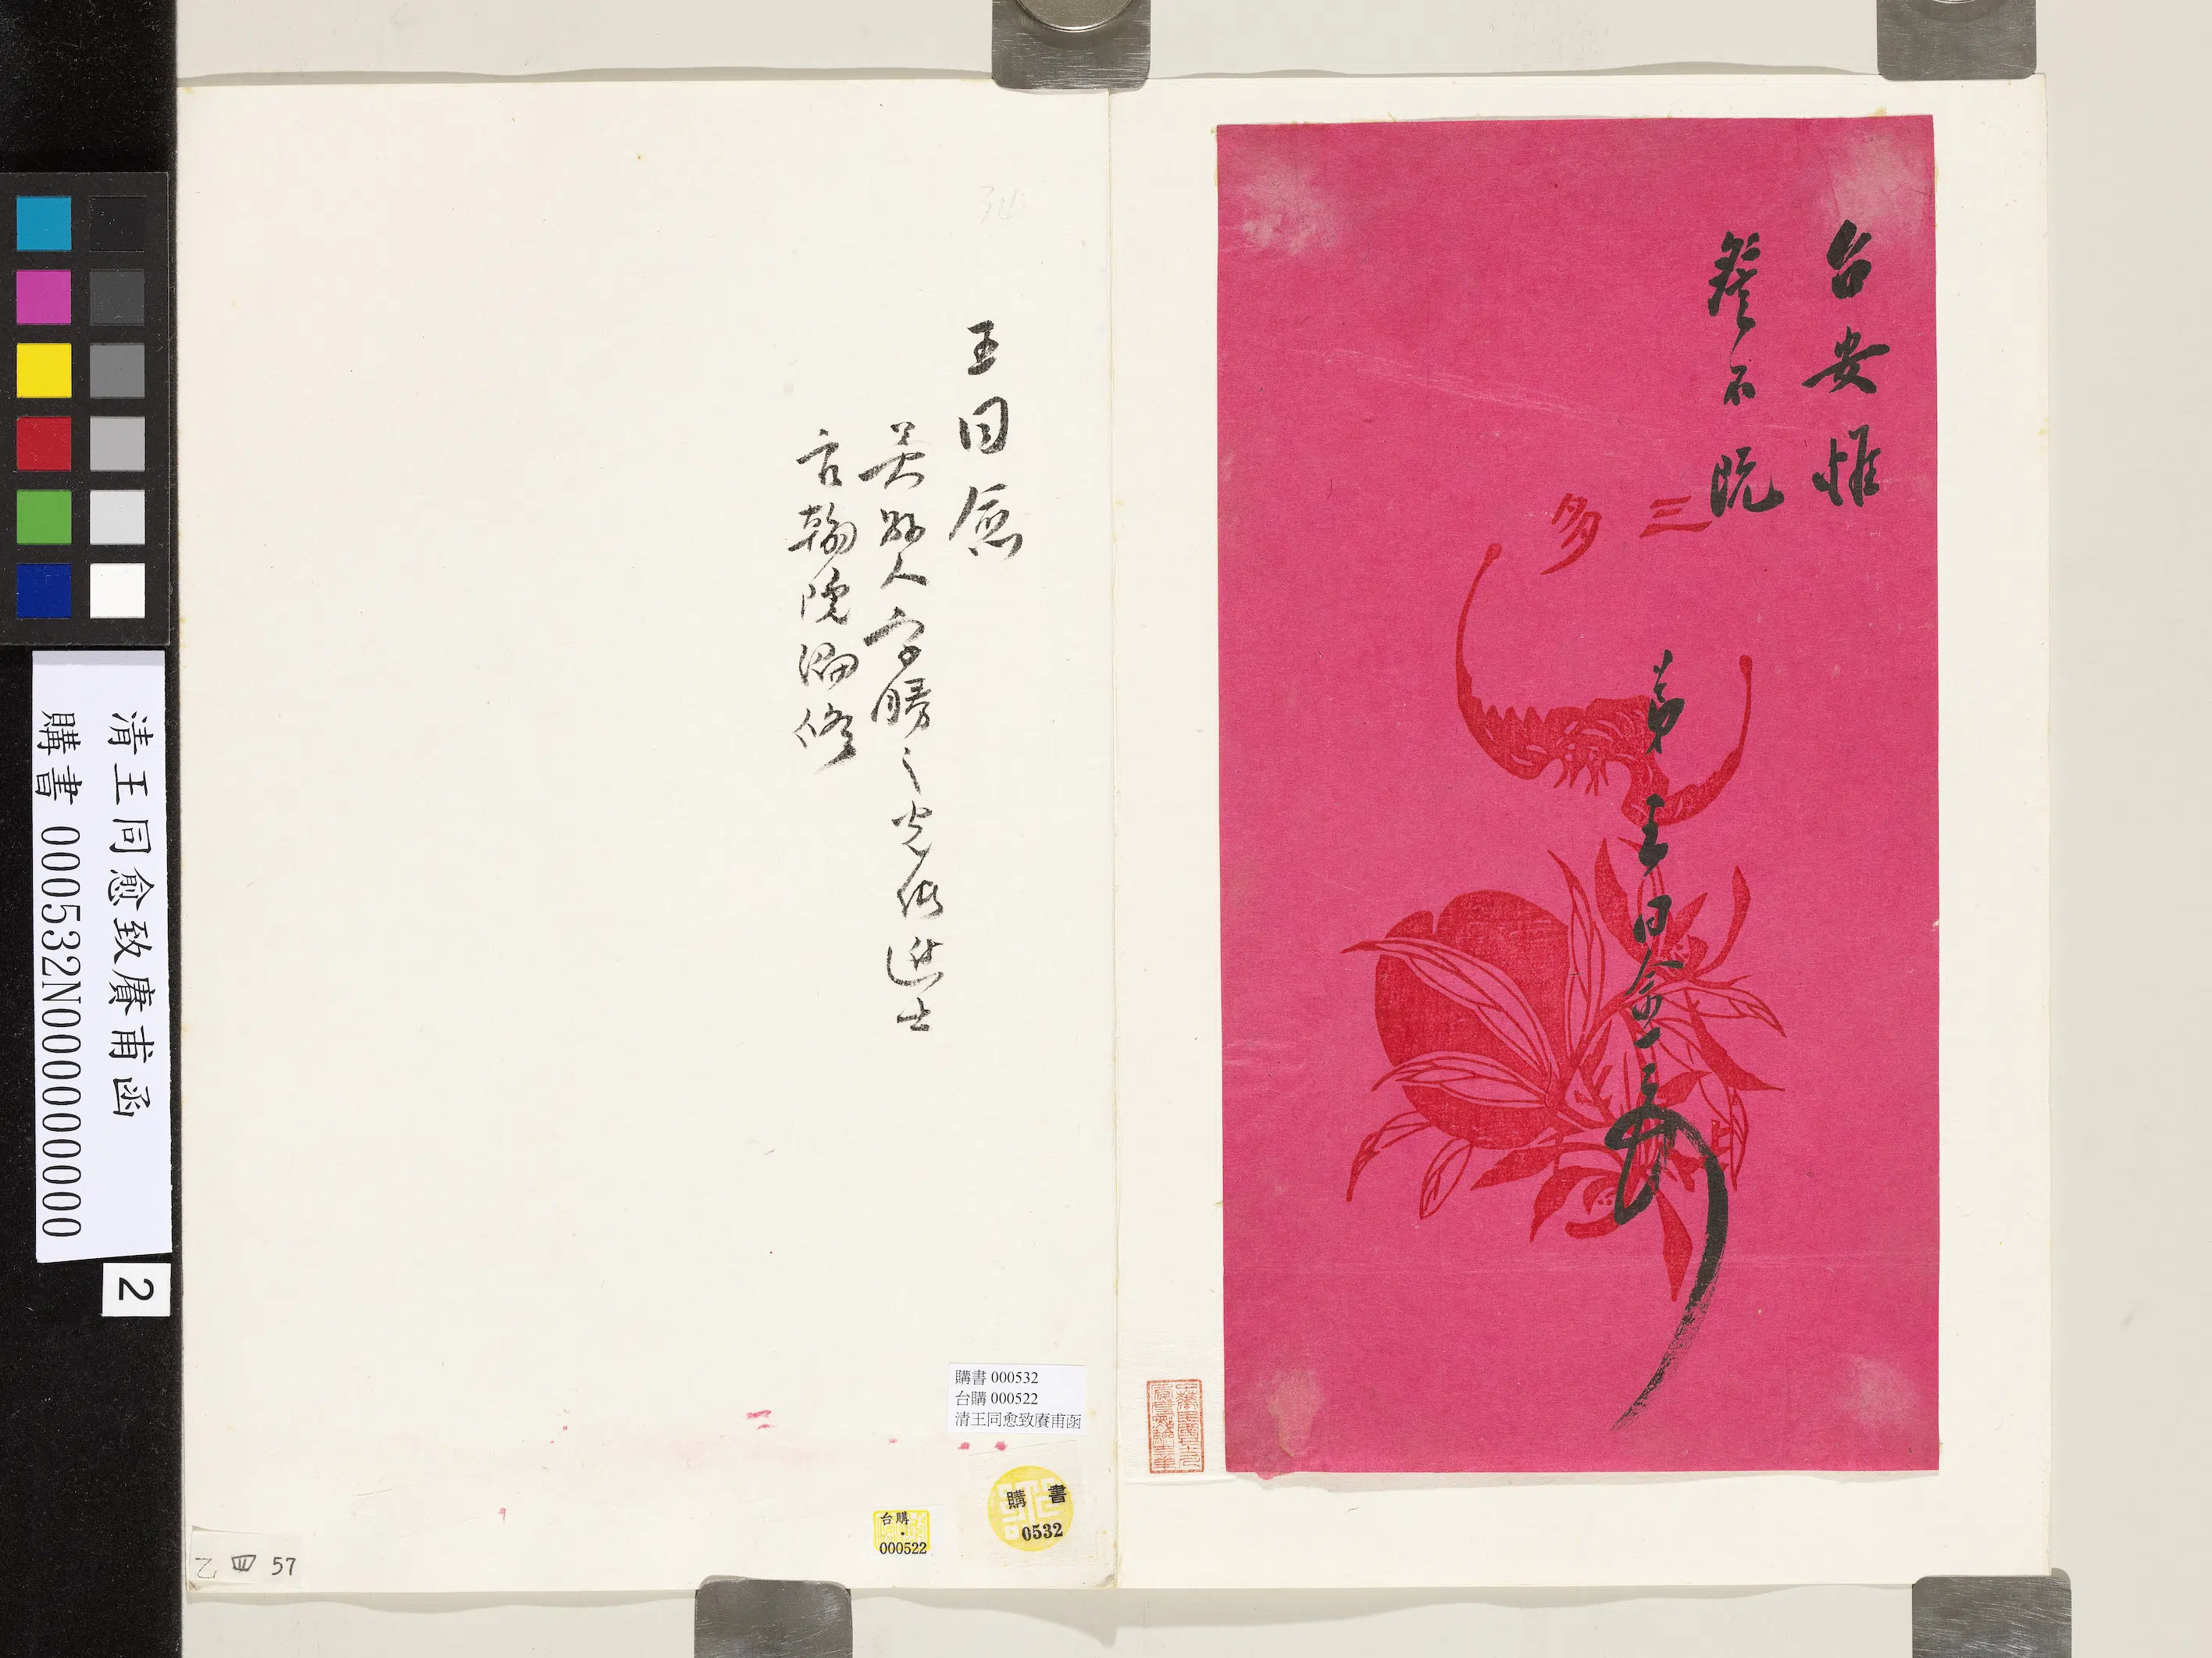 台安惟
詧不既
三多
弟王同愈
王同愈
吳縣人字勝之光緒進士
官翰院編修
購書 000532
台購 000522
清王同愈致賡甫函
購書
0532
台購
000522
乙 四 57
清王同愈致賡甫函
購書 000532N000000000
2